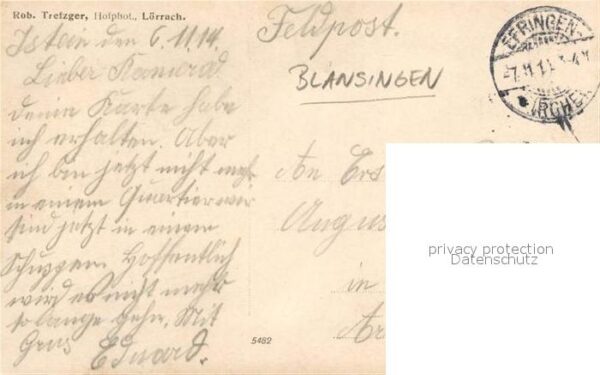 Rob. Trefzger, Hofphot., Lörrach.
Istein den 6.11.14.
Lieber Kamerad
deine Karte habe
ich erhalten. Aber
ich bin jetzt nicht mehr
in einem Quartier wir
sind jetzt in einem
Schuppen. Hoffentlich
wird es nicht mehr
so lange gehn. Mit
Gruss
Eduard.
5482
Feldpost.
BLANSINGEN
EFRINGEN-
KIRCHEN
An Ers
August
in
privacy protection
Datenschutz